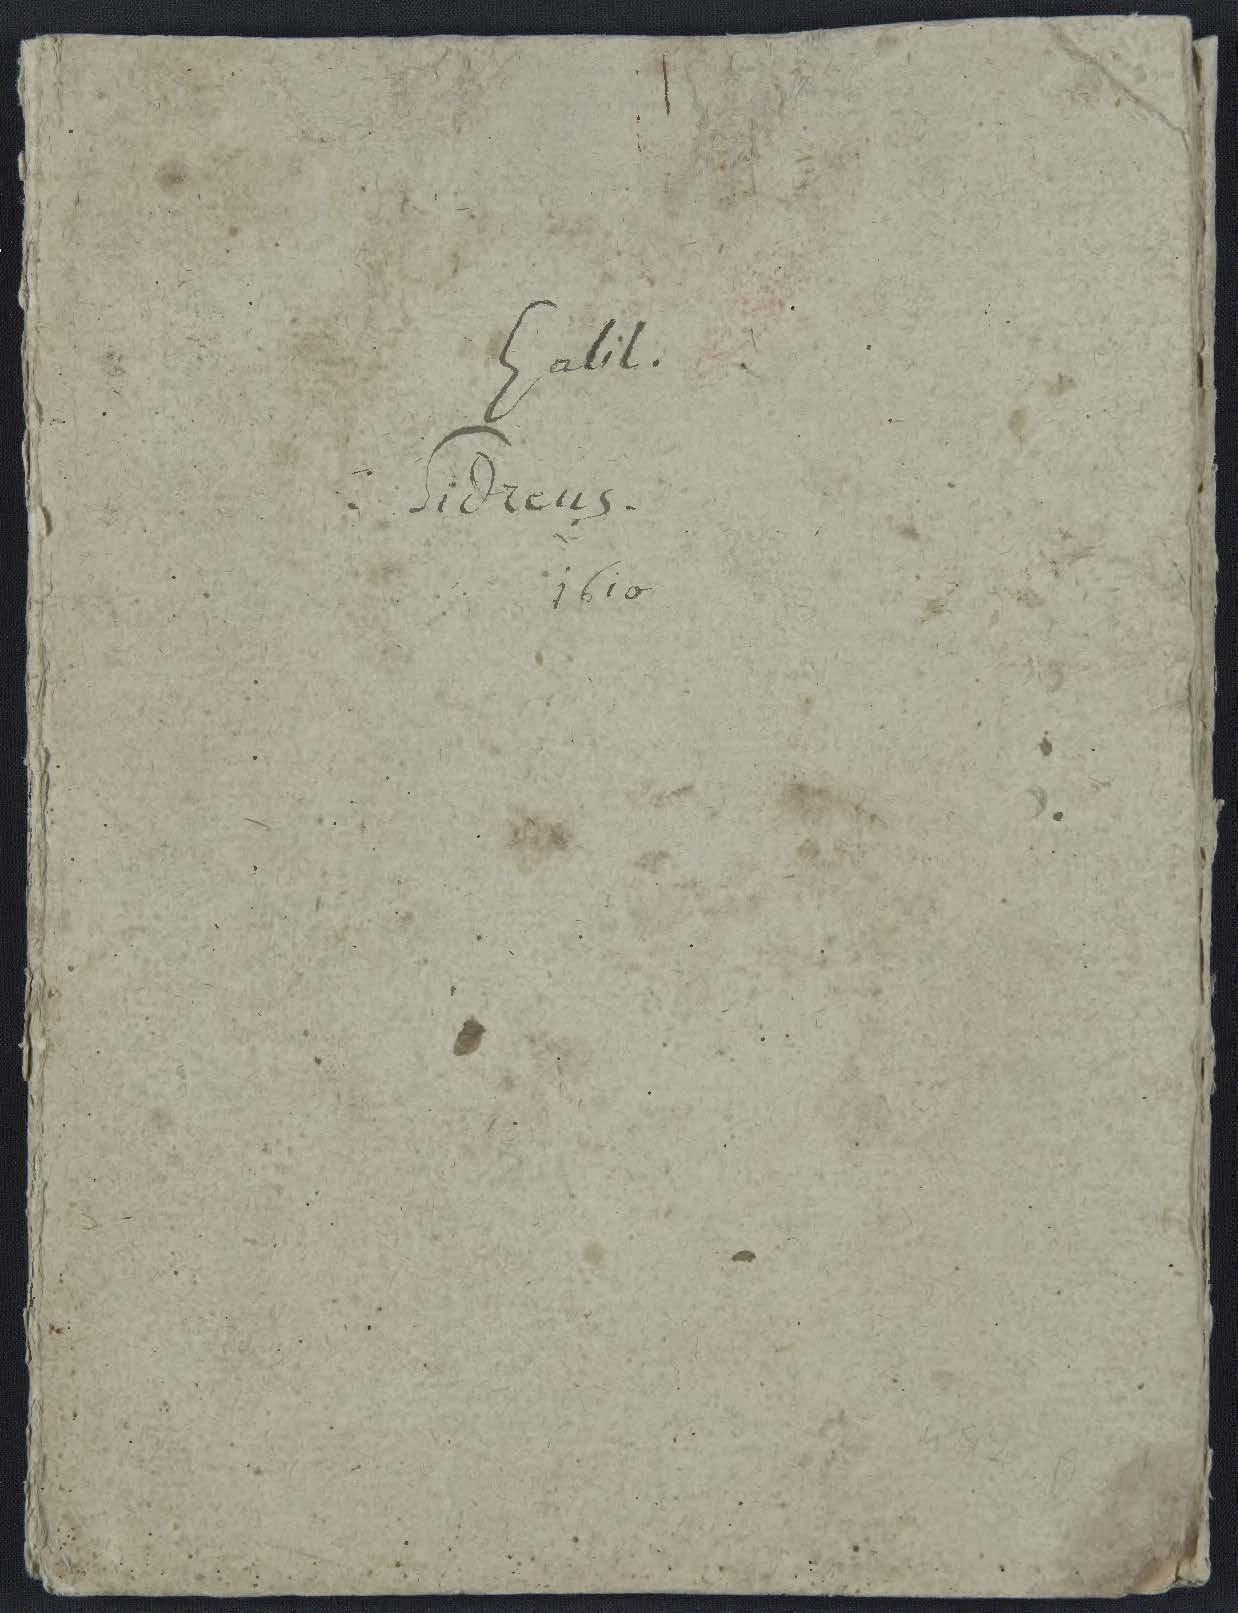 Galil.
Sidreus.
1610